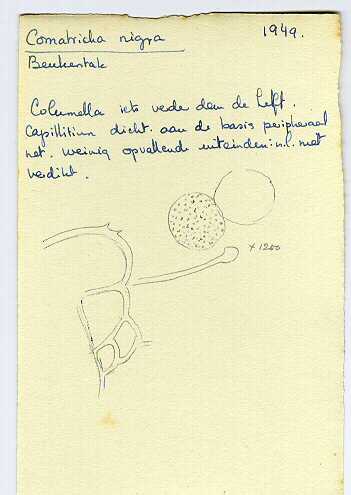 Comatricha nigra 1949.
Beukentak
Columella iets verder dan de helft.
Capillitium dicht. aan de basis peripheraal
net. weinig opvallende uiteinden: n.l. niet
verdikt.
x 1200